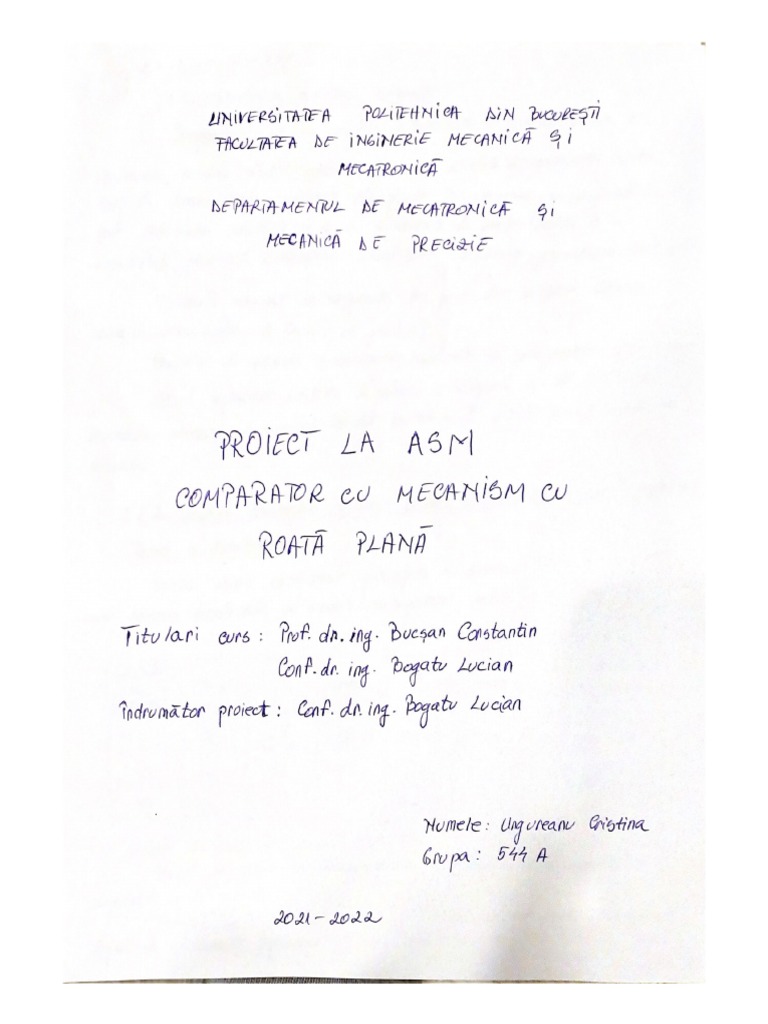 UNIVERSITATEA POLITEHNICA DIN BUCUREȘTI
FACULTATEA DE INGINERIE MECANICĂ ȘI
MECATRONICĂ
DEPARTAMENTUL DE MECATRONICĂ ȘI
MECANICĂ DE PRECIZIE
PROIECT LA ASM
COMPARATOR CU MECANISM CU
ROATĂ PLANĂ
Titulari curs: Prof. dr. ing. Bucșan Constantin
Conf. dr. ing. Bogatu Lucian
Îndrumător proiect: Conf. dr. ing. Bogatu Lucian
Numele: Ungureanu Cristina
Grupa: 544 A
2021-2022